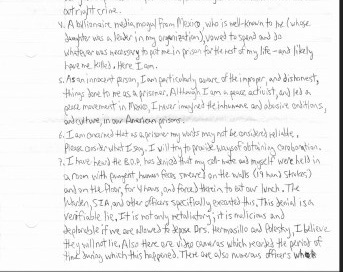 outright crime.
4. A billionaire media mogul from Mexico, who is well-known to me (whose
daughter was a leader in my organization), vowed to spend and do
whatever was necessary to put me in prison for the rest of my life - and likely
have me killed. Here I am.
5. As an innocent person, I am particularly aware of the improper, and dishonest,
things done to me as a prisoner. Although I am a peace activist, and led a
peace movement in Mexico, I never imagined the inhumane and abusive conditions,
and culture, in our American prisons.
6. I am concerned that as a prisoner my words may not be considered reliable.
Please consider what I say. I will try to provide ways of obtaining corroboration.
7. I have heard the B.O.P. has denied that my cell-mate and myself were held in
a room with pungent, human feces smeared on the walls (19 hand strokes)
and on the floor, for 4 hours, and forced therein to eat our lunch. The
Warden, SIA and other officers specifically executed this. This denial is a
verifiable lie. It is not only retaliatory; it is malicious and
deplorable if we are allowed to depose Drs. Hermosillo and Pelashy, I believe
they will not lie. Also there are video cameras which recorded the period of
time during which this happened. There are also numerous officers